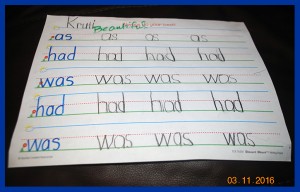 Beautiful
as as as as
had had had had
was was was was
had had had had
was was was was
03 11 2016